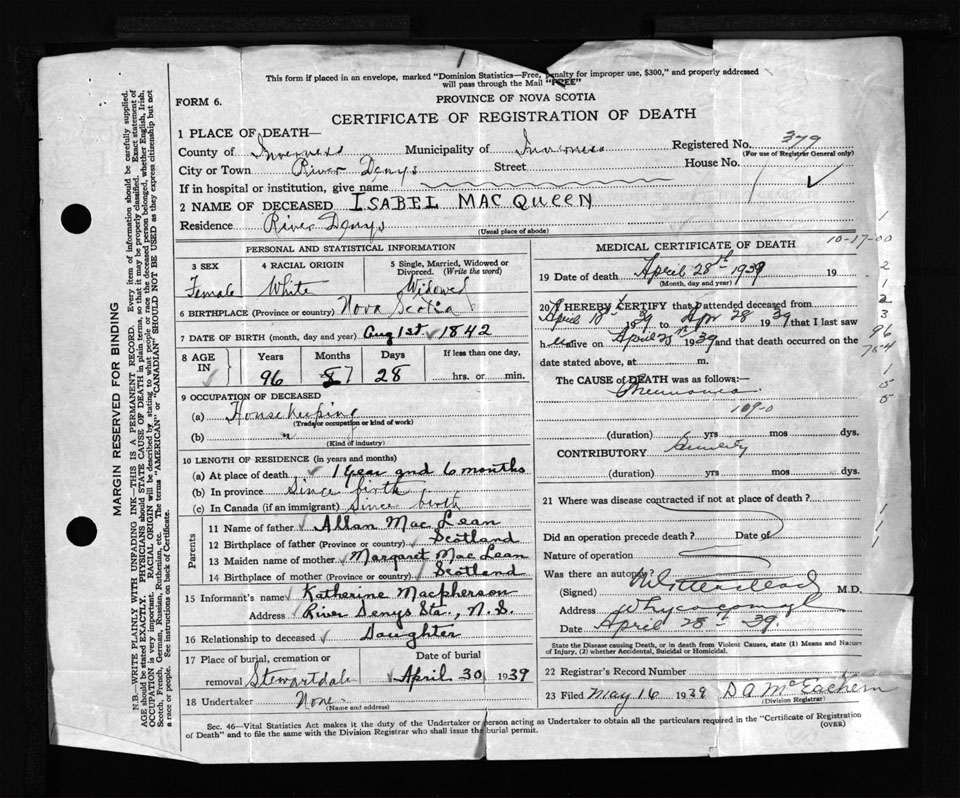 This form if placed in an envelope, marked "Dominion Statistics—Free, Penalty for improper use, $300," and properly addressed
will pass through the Mail "FREE"
FORM 6.
PROVINCE OF NOVA SCOTIA
CERTIFICATE OF REGISTRATION OF DEATH
1 PLACE OF DEATH—
Registered No. 379
(For use of Registrar General only)
County of Inverness Municipality of Inverness
City or Town River Denys Street House No.
If in hospital or institution, give name
2 NAME OF DECEASED ISABEL MAC QUEEN
Residence River Denys
(Usual place of abode)
PERSONAL AND STATISTICAL INFORMATION
3 SEX 4 RACIAL ORIGIN 5 Single, Married, Widowed or
Divorced. (Write the word)
Female White Widowed
6 BIRTHPLACE (Province or country) Nova Scotia
7 DATE OF BIRTH (month, day and year) Aug 1st 1842
8 AGE IN Years Months Days If less than one day,
96 8 7 28 hrs. or min.
9 OCCUPATION OF DECEASED
(a) House Keeping
(Trade or occupation or kind of work)
(b) "
(Kind of industry)
10 LENGTH OF RESIDENCE (in years and months)
(a) At place of death 1 year and 6 months
(b) In province Since birth
(c) In Canada (if an immigrant) Since birth
Parents
11 Name of father Allan Mac Lean
12 Birthplace of father (Province or country) Scotland
13 Maiden name of mother Margaret Mac Lean
14 Birthplace of mother (Province or country) Scotland
15 Informant's name Katherine Macpherson
Address River Denys Sta., N.S.
16 Relationship to deceased Daughter
17 Place of burial, cremation or Date of burial
removal Stewartdale April 30 1939
18 Undertaker None
(Name and address)
MEDICAL CERTIFICATE OF DEATH
10-17-00
19 Date of death April 28th 1939 19
(Month, day and year)
20 I HEREBY CERTIFY that I attended deceased from
April 1939 to Apr 28 1939 that I last saw
h alive on April 1939 and that death occurred on the
date stated above, at m.
The CAUSE of DEATH was as follows:—
Pneumonia
109-0
(duration) yrs mos dys.
CONTRIBUTORY Senility
(duration) yrs. mos. dys.
21 Where was disease contracted if not at place of death?
Did an operation precede death? Date of
Nature of operation
Was there an autopsy?
(Signed) M.D.
Address Whycocomagh
Date April 28th 39.
State the Disease causing Death, or in death from Violent Causes, state (1) Means and Nature
of Injury, (2) whether Accidental, Suicidal or Homicidal.
22 Registrar's Record Number
23 Filed May 16 1939 D A McEachern
(Division Registrar)
Sec. 46—Vital Statistics Act makes it the duty of the Undertaker or person acting as Undertaker to obtain all the particulars required in the "Certificate of Registration
of Death" and to file the same with the Division Registrar who shall issue the burial permit. (OVER)
MARGIN RESERVED FOR BINDING
N.B.—WRITE PLAINLY WITH UNFADING INK—THIS IS A PERMANENT RECORD. Every item of information should be carefully supplied.
AGE should be stated EXACTLY. PHYSICIANS should STATE CAUSE OF DEATH in plain terms, so that it may be properly classified. Exact statement of
OCCUPATION is very important. RACIAL ORIGIN will be described by stating to what people or race the deceased person belonged, whether English, Irish,
Scotch, French, German, Russian, Ruthenian, etc. The terms "AMERICAN" or "CANADIAN" SHOULD NOT BE USED as they express citizenship but not
a race or people. See instructions on back of Certificate.